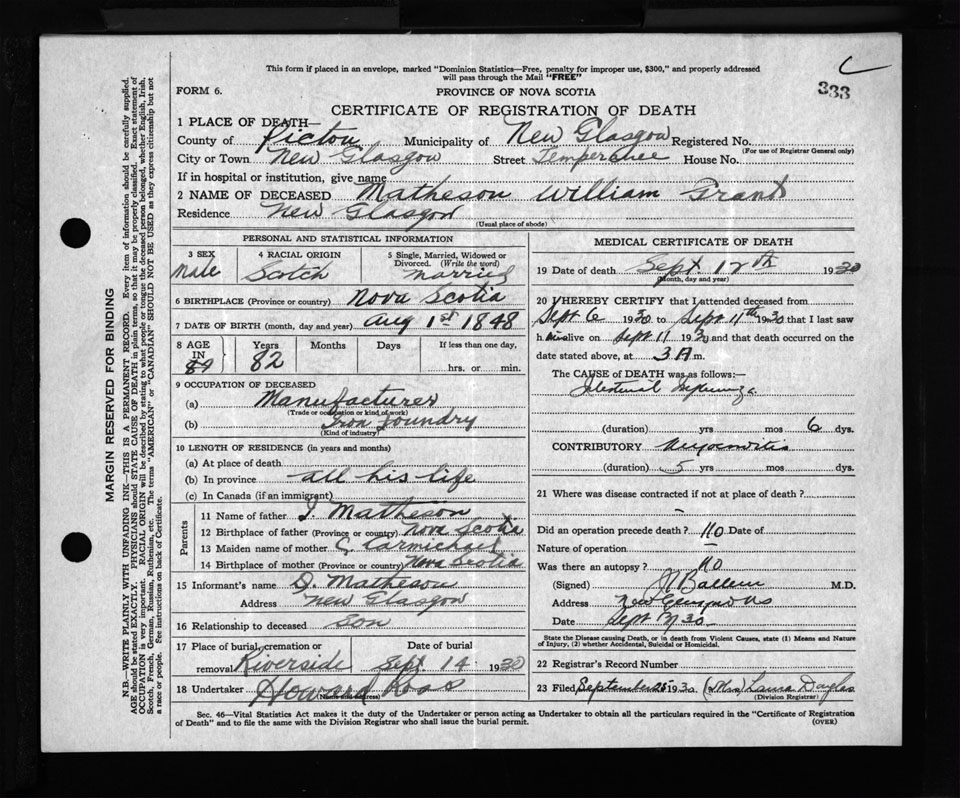 This form if placed in an envelope, marked "Dominion Statistics—Free, penalty for improper use, $300," and properly addressed
will pass through the Mail "FREE"
333
FORM 6.
PROVINCE OF NOVA SCOTIA
CERTIFICATE OF REGISTRATION OF DEATH
1 PLACE OF DEATH—
County of Pictou Municipality of New Glasgow Registered No.
(For use of Registrar General only)
City or Town New Glasgow Street Temperance House No.
If in hospital or institution, give name
2 NAME OF DECEASED Matheson William Grant
Residence New Glasgow
(Usual place of abode)
PERSONAL AND STATISTICAL INFORMATION
3 SEX Male
4 RACIAL ORIGIN Scotch
5 Single, Married, Widowed or Divorced. (Write the word) Married
6 BIRTHPLACE (Province or country) Nova Scotia
7 DATE OF BIRTH (month, day and year) Aug 1st 1848
8 AGE IN
Years 82 Months Days If less than one day,
hrs. or min.
9 OCCUPATION OF DECEASED
(a) Manufacturer
(Trade or occupation or kind of work)
(b) Iron Foundry
(Kind of industry)
10 LENGTH OF RESIDENCE (in years and months)
(a) At place of death
(b) In province all his life
(c) In Canada (if an immigrant)
Parents
11 Name of father Matheson
12 Birthplace of father (Province or country) Nova Scotia
13 Maiden name of mother C. Carmichael
14 Birthplace of mother (Province or country) Nova Scotia
15 Informant's name D. Matheson
Address New Glasgow
16 Relationship to deceased Son
17 Place of burial, cremation or removal Riverside
Date of burial Sept 14 1930
18 Undertaker Howard Ross
MEDICAL CERTIFICATE OF DEATH
19 Date of death Sept 12th 1930
(Month, day and year)
20 I HEREBY CERTIFY that I attended deceased from
Sept 6 1930 to Sept 11th 1930 that I last saw
him alive on Sept 11 1930 and that death occurred on the
date stated above, at 3 A m.
The CAUSE of DEATH was as follows:—
Intestinal
(duration) yrs mos 6 dys.
CONTRIBUTORY Myocarditis
(duration) 5 yrs mos dys.
21 Where was disease contracted if not at place of death?
Did an operation precede death? no Date of
Nature of operation
Was there an autopsy? no
(Signed) M.D.
Address New Glasgow NS
Date Sept 30
State the Disease causing Death, or in death from Violent Causes, state (1) Means and Nature
of Injury, (2) whether Accidental, Suicidal or Homicidal.
22 Registrar's Record Number
23 Filed September 1930 (Mrs) Laura Douglas
(Division Registrar)
Sec. 46—Vital Statistics Act makes it the duty of the Undertaker or person acting as Undertaker to obtain all the particulars required in the "Certificate of Registration
of Death" and to file the same with the Division Registrar who shall issue the burial permit.
(OVER)
MARGIN RESERVED FOR BINDING
N.B.—WRITE PLAINLY WITH UNFADING INK—THIS IS A PERMANENT RECORD. Every item of information should be carefully supplied.
AGE should be stated EXACTLY. PHYSICIANS should STATE CAUSE OF DEATH in plain terms, so that it may be properly classified. Exact statement of
OCCUPATION is very important. RACIAL ORIGIN will be described by stating to what people or tongue the deceased person belonged, whether English, Irish,
Scotch, French, German, Russian, Ruthenian, etc. The terms "AMERICAN" or "CANADIAN" SHOULD NOT BE USED as they express citizenship but not
a race or people. See instructions on back of Certificate.